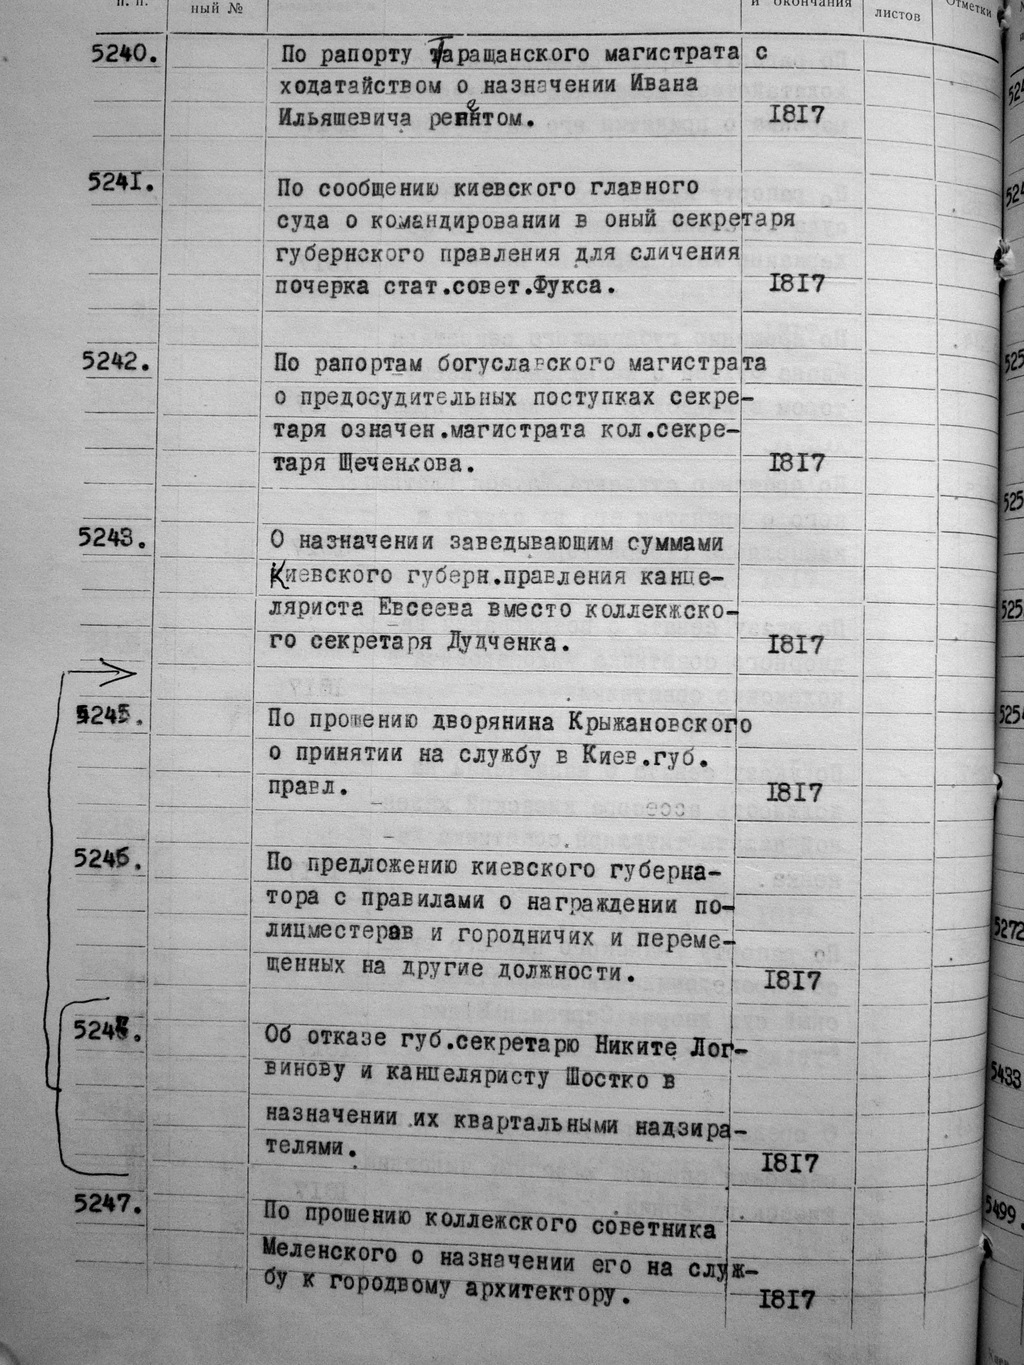 п. п.
ный №
и окончания
листов
Отметки
5240.
По рапорту Таращанского магистрата с
ходатайством о назначении Ивана
Ильяшевича рентом.
1817
5241.
По сообщению киевского главного
суда о командировании в оный секретаря
губернского правления для сличения
почерка стат.совет.Фукса.
1817
5242.
По рапортам богуславского магистрата
о предосудительных поступках секре-
таря означен.магистрата кол.секре-
таря Щеченкова.
1817
5243.
О назначении заведывающим суммами
Киевского губерн.правления канце-
ляриста Евсеева вместо коллекжско-
го секретаря Дудченка.
1817
5245.
По прошению дворянина Крыжановского
о принятии на службу в Киев.губ.
правл.
1817
5246.
По предложению киевского губерна-
тора с правилами о награждении по-
лицместерав и городничих и переме-
щенных на другие должности.
1817
Об отказе губ.секретарю Никите Лог-
винову и канцеляристу Шостко в
назначении их квартальными надзира-
телями.
1817
5247.
По прошению коллежского советника
Меленского о назначении его на служ-
бу к городвому архитектору.
1817
5272
5433
5499.